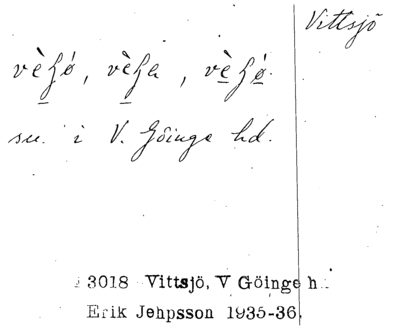 Vittsjö
sn. i V. Göinge hd.
3018 Vittsjö, V Göinge h.
Erik Jehpsson 1935-36.